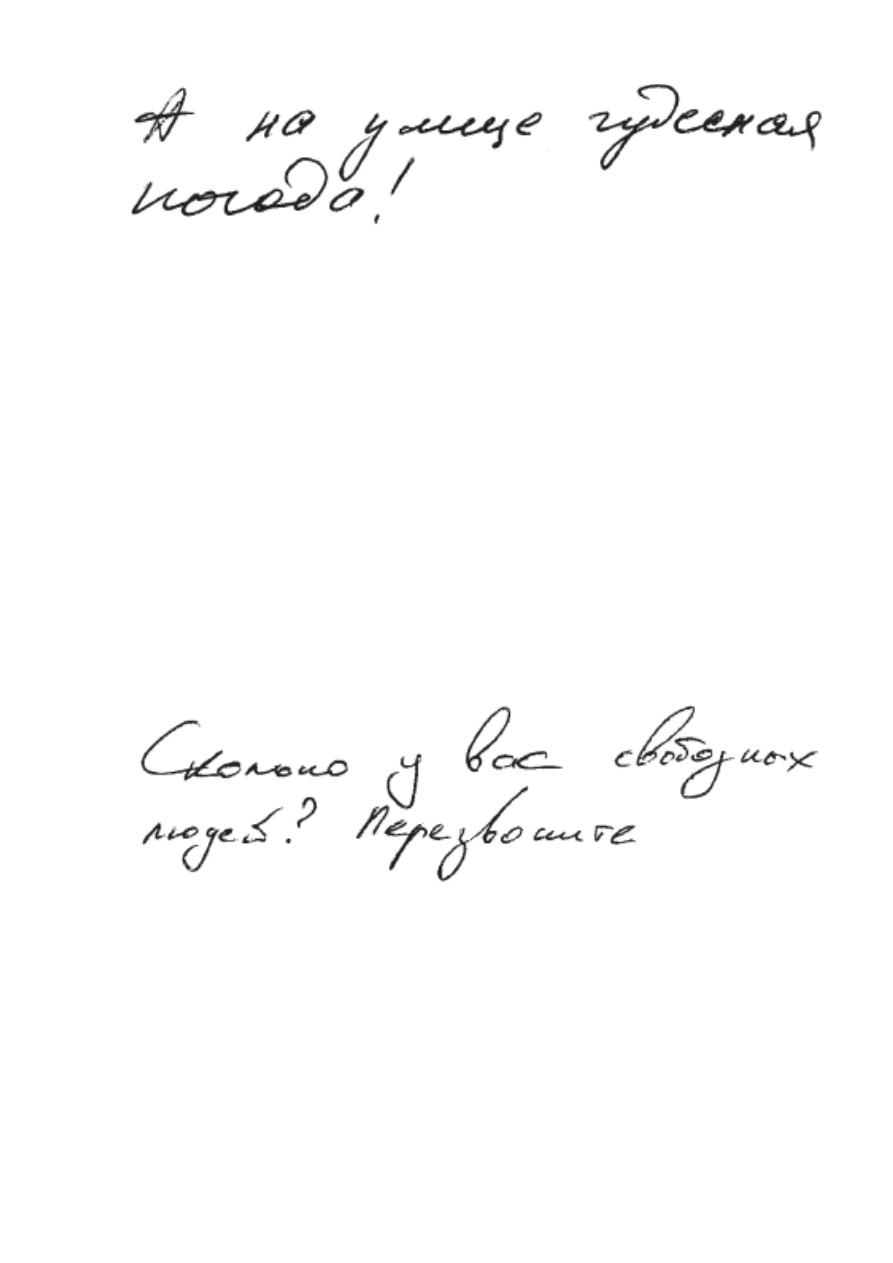 А на улице чудесная
погода!
Сколько у вас свободных
людей? Перезвоните